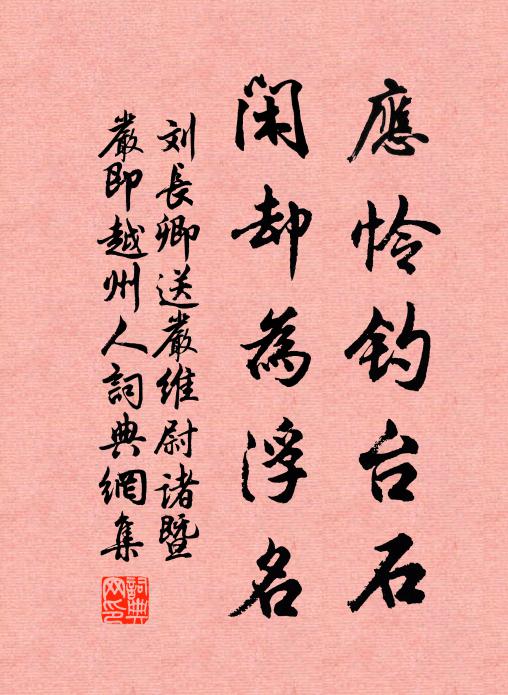 應怜钓台石
闲却為浮名
刘長卿送嚴維尉诸暨
嚴即越州人詞典網集
詞典
网印